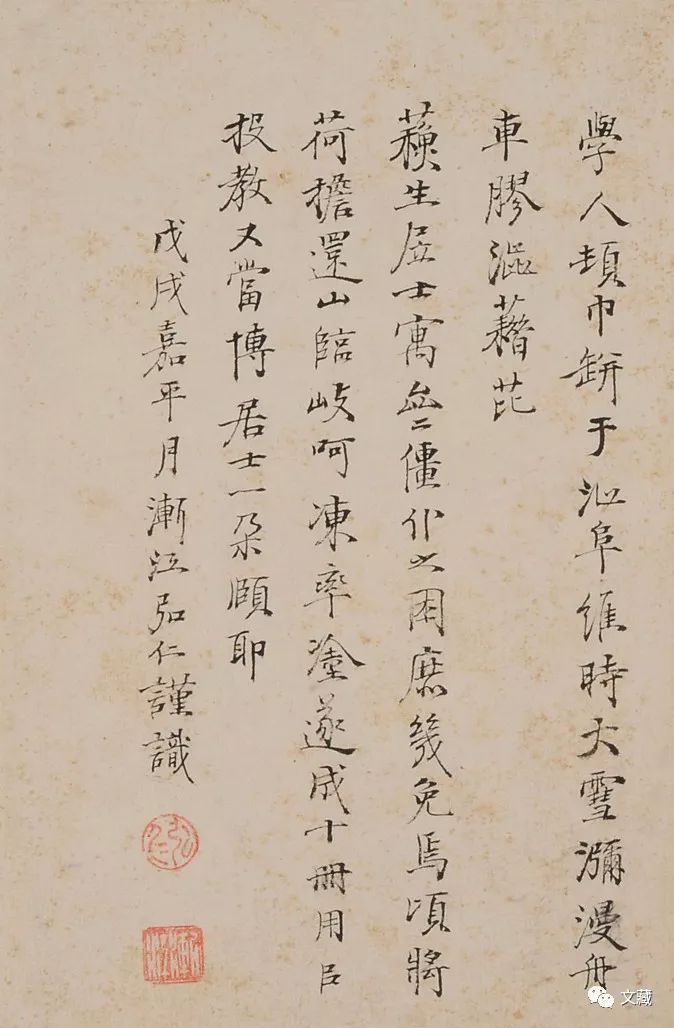 學人頓巾缾于沁阜維時大雪瀰漫舟
車膠澁藉芘
蘓生居士寓無二僵仆之困庶幾免焉頃將
荷擔還山臨岐呵凍率塗遂成十冊用㠯
投教又當博居士一朵頤耶
戊戌嘉平月漸江弘仁謹識
弘仁
漸江
文藏